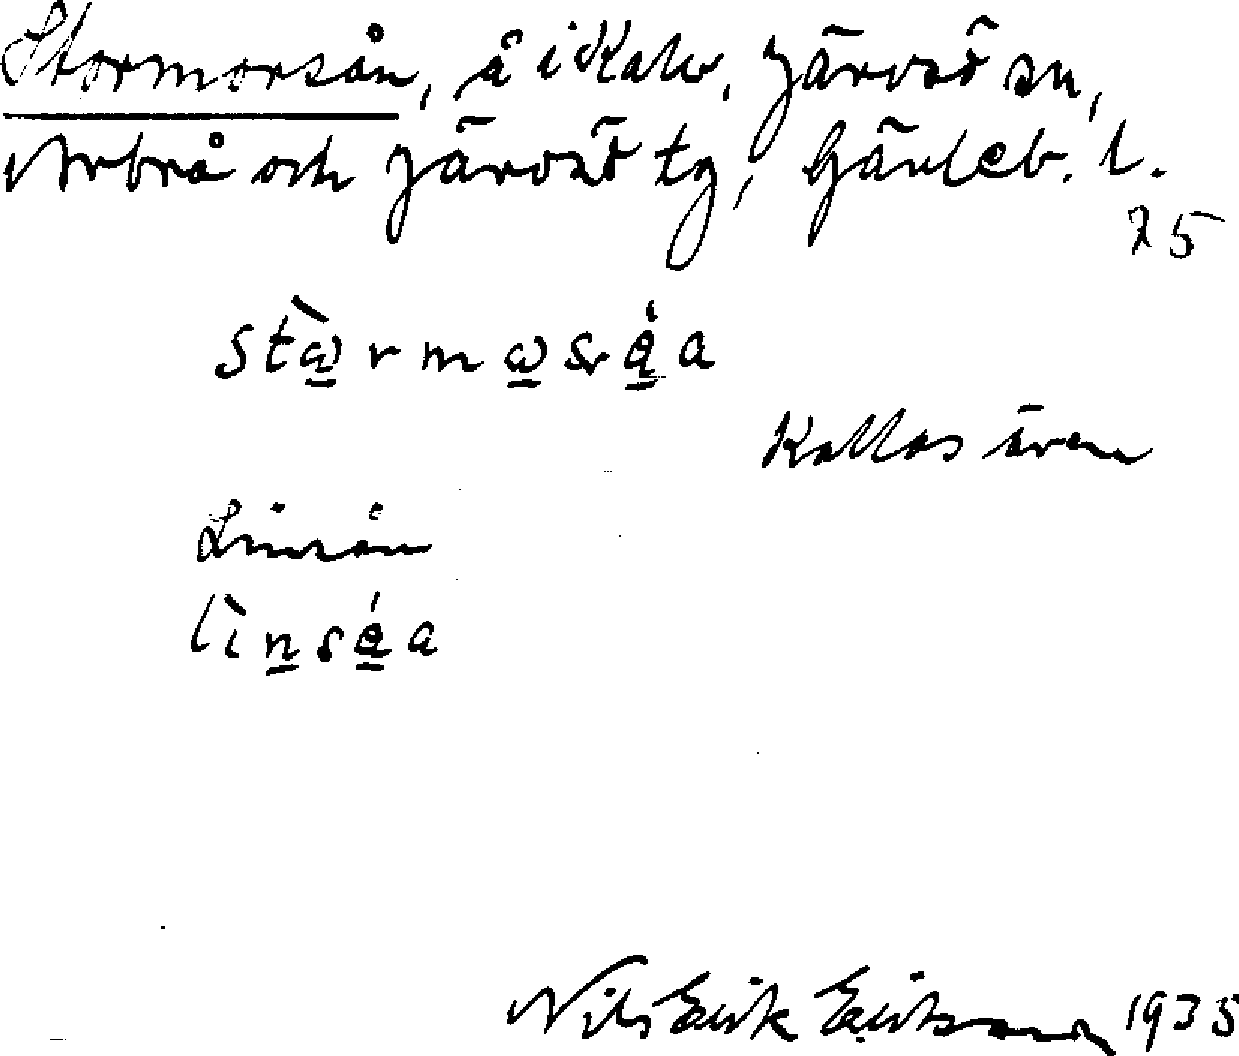 Stormorsån, å i Kalv, Järvsö sn,
Arbrå och Järvsö tg, Gävleb. l.
75
Kallas även
Linsån
Nils Erik Eriksson 1935